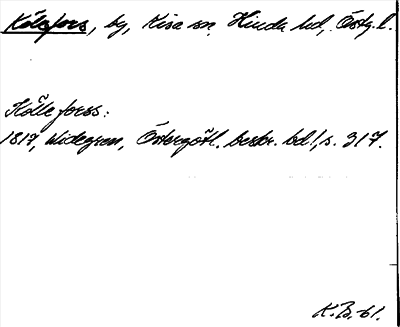 Kölefors, by, Kisa sn, Kinda hd, Östg. l.
Kölle forss:
1817, Widegren, Östergötl. beskr. bd 1, s. 317.
K. B. 61.